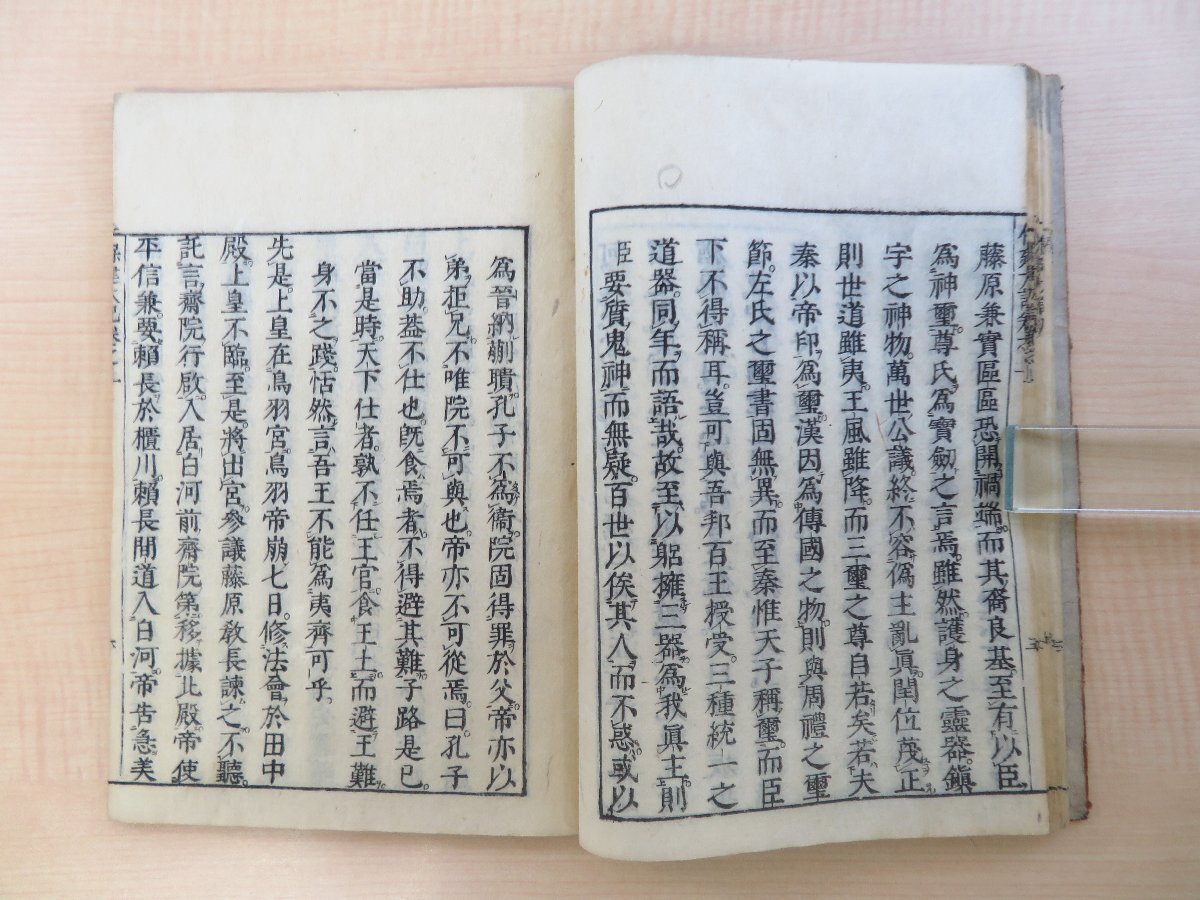 藤原兼實區區恐開禍端。而其裔良基。至有以臣
爲神璽。尊氏。爲寶劒之言焉。雖然護身之靈器。鎭
宇之神物。萬世公議。終不容僞主亂眞。閏位茂正
則世道雖夷。王風雖降。而三璽之尊自若矣。若夫
秦以帝印。爲璽。漢因。爲傳國之物。則與周禮之璽
節。左氏之璽書固無異。而至秦惟天子稱璽。而臣
下不得稱耳。豈可與吾邦百王授受。三種統一之
道器。同年。而語哉。故至以躬擁三器。爲我眞主。則
臣要質鬼神。而無疑。百世以俟其人。而不惑。或以
爲晉納蒯聵。孔子不爲衞。院固得罪於父。帝亦以
弟。拒兄。不唯院不可與也。帝亦不可從焉。曰。孔子
不助。蓋不仕也。旣食焉者。不得避其難。子路是已。
當是時。天下仕者。孰不任王官。食王土。而避王難
身不之踐。怙然。言吾王不能爲夷齊可乎。
先是。上皇在鳥羽宮。鳥羽帝崩七日。修法會於田中
殿。上皇不臨。至是。將出宮。參議藤原敎長諫之。不聽。
託言齋院行啟。入居白河前齋院第。移據北殿。帝使
平信兼要賴長於櫃川。賴長間道入白河。帝告急。美